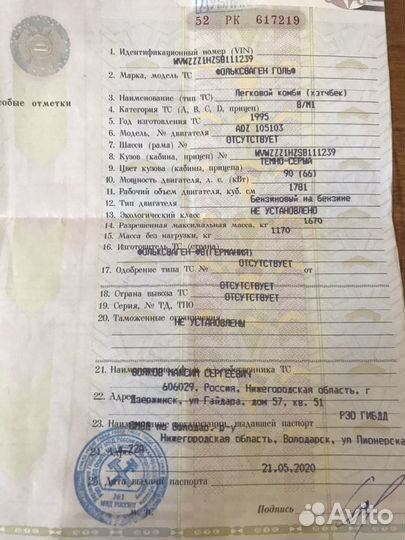 ДУБЛИКАТ
52 РК 617219
1. Идентификационный номер (VIN)
WVWZZZ1HZSB111239
2. Марка, модель ТС
ФОЛЬКСВАГЕН ГОЛЬФ
собые отметки
3. Наименование (тип ТС)
Легковой комби (хэтчбек)
4. Категория ТС (А, В, С, D, прицеп)
В/М1
5. Год изготовления ТС
1995
6. Модель, № двигателя
ADZ 105103
7. Шасси (рама) №
ОТСУТСТВУЕТ
8. Кузов (кабина, прицеп) №
WVWZZZ1HZSB111239
9. Цвет кузова (кабины, прицепа)
ТЕМНО-СЕРЫЙ
10. Мощность двигателя, л. с. (кВт)
90 (66)
11. Рабочий объем двигателя, куб. см
1781
12. Тип двигателя
Бензиновый на бензине
13. Экологический класс
НЕ УСТАНОВЛЕНО
14. Разрешенная максимальная масса, кг
1670
15. Масса без нагрузки, кг
1170
16. Изготовитель ТС (страна)
ФОЛЬКСВАГЕН-ФВ(ГЕРМАНИЯ)
ОТСУТСТВУЕТ
17. Одобрение типа ТС № от
ОТСУТСТВУЕТ
18. Страна вывоза ТС
ОТСУТСТВУЕТ
19. Серия, № ТД, ТПО
20. Таможенные ограничения
НЕ УСТАНОВЛЕНЫ
21. Наименование собственника ТС
МАКСИМ СЕРГЕЕВИЧ
606029, Россия, Нижегородская область, г
22. Адрес
Дзержинск, ул Гайдара, дом 57, кв. 51
23. Наименование организации, выдавшей паспорт
РЭО ГИБДД
Володар. р-у
Нижегородская область, Володарск, ул Пионерска
24. Адрес
21.05.2020
25. Дата выдачи паспорта
№1
МВД РОССИИ
М. П.
Подпись
Avito